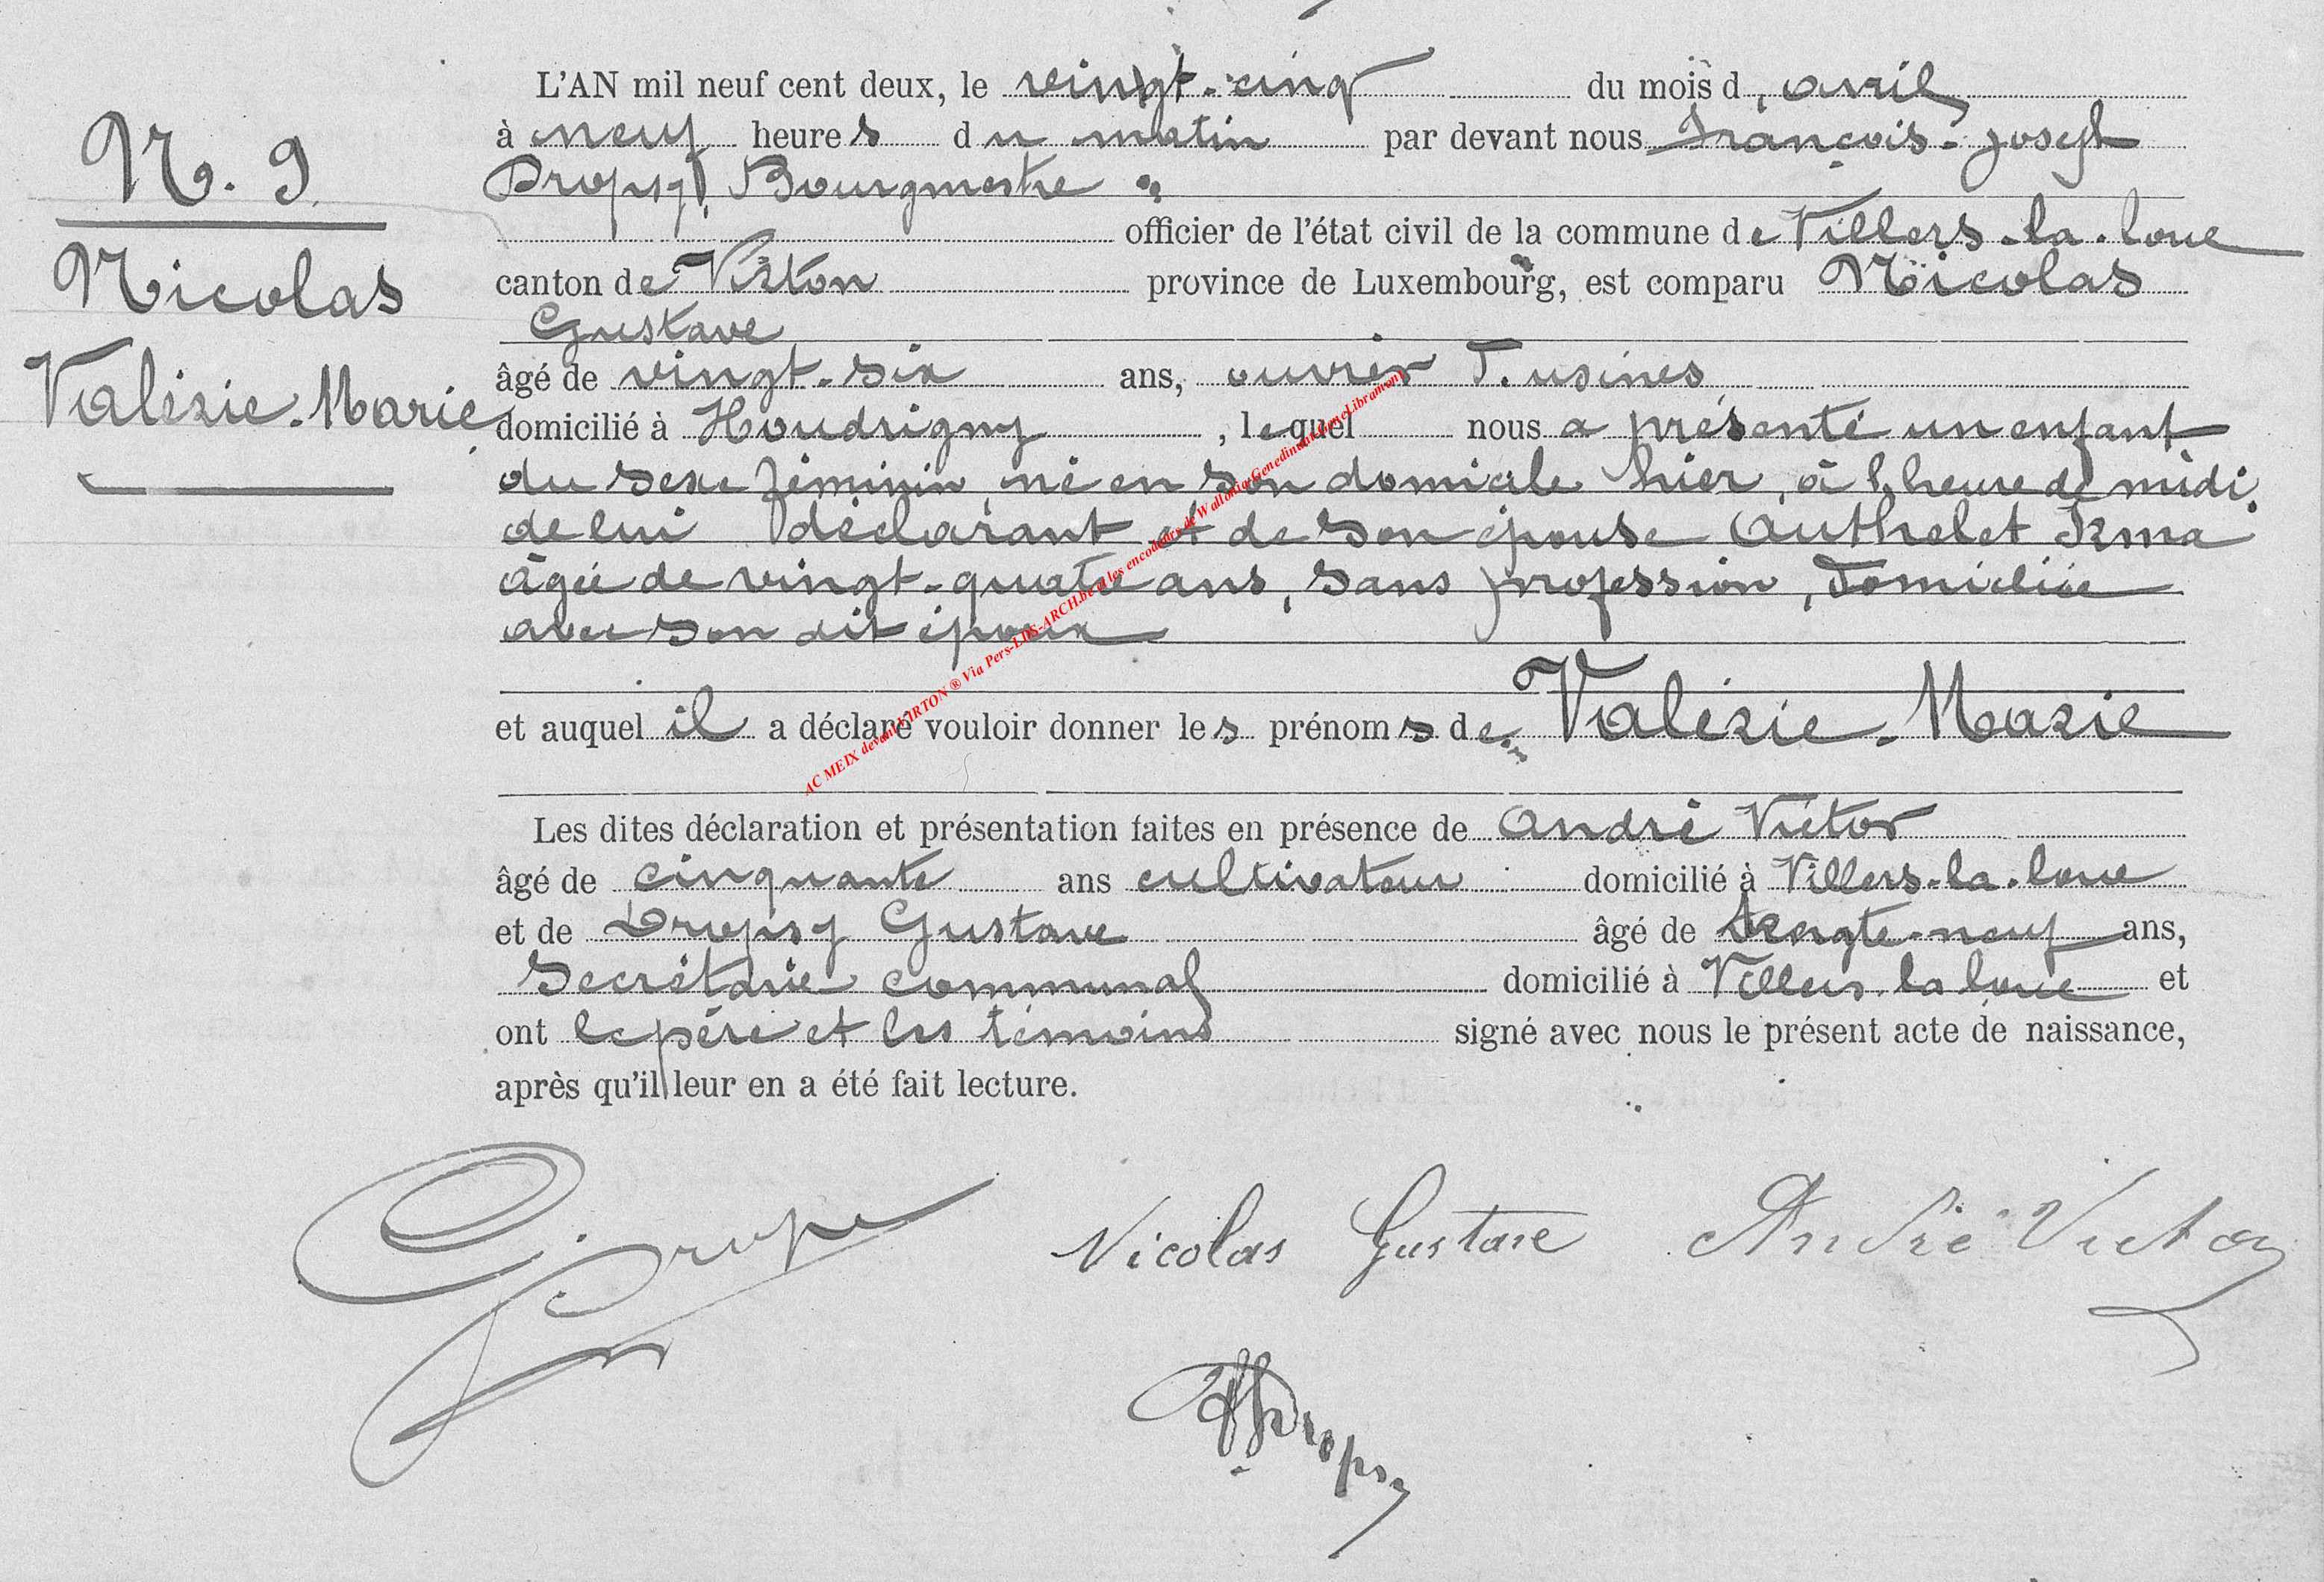 L'AN mil neuf cent deux, le vingt-cinq du mois d'avril
N. 9
à neuf heures du matin par devant nous François-Joseph
Dropsy, Bourgmestre
officier de l'état civil de la commune de Villers-la-loue
Nicolas
canton de Virton province de Luxembourg, est comparu Nicolas
Gustave
Valérie-Marie
âgé de vingt-six ans, ouvrier d'usines
domicilié à Houdrigny, lequel nous a présenté un enfant
du sexe féminin, né en son domicile hier, à l'heure de midi,
de lui déclarant et de son épouse Authelet Irma
âgée de vingt-quatre ans, sans profession, domiciliée
avec son dit époux
et auquel il a déclaré vouloir donner les prénoms de Valérie-Marie
Les dites déclaration et présentation faites en présence de André Victor
âgé de cinquante ans cultivateur domicilié à Villers-la-loue
et de Dropsy Gustave âgé de trente-neuf ans,
Secrétaire communal domicilié à Villers-la-loue et
ont le père et les témoins signé avec nous le présent acte de naissance,
après qu'il leur en a été fait lecture.
G. Dropsy Nicolas Gustave André Victor
Dropsy
AC MEIX devant VIRTON ® Via Pers-LDS-ARCH.be et les encodeurs de Wallonia-Genedinant